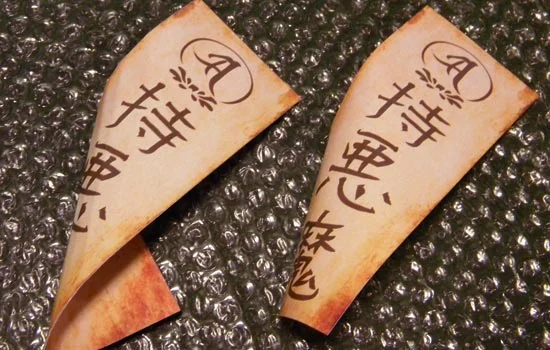 A
持悪
A
持悪魔